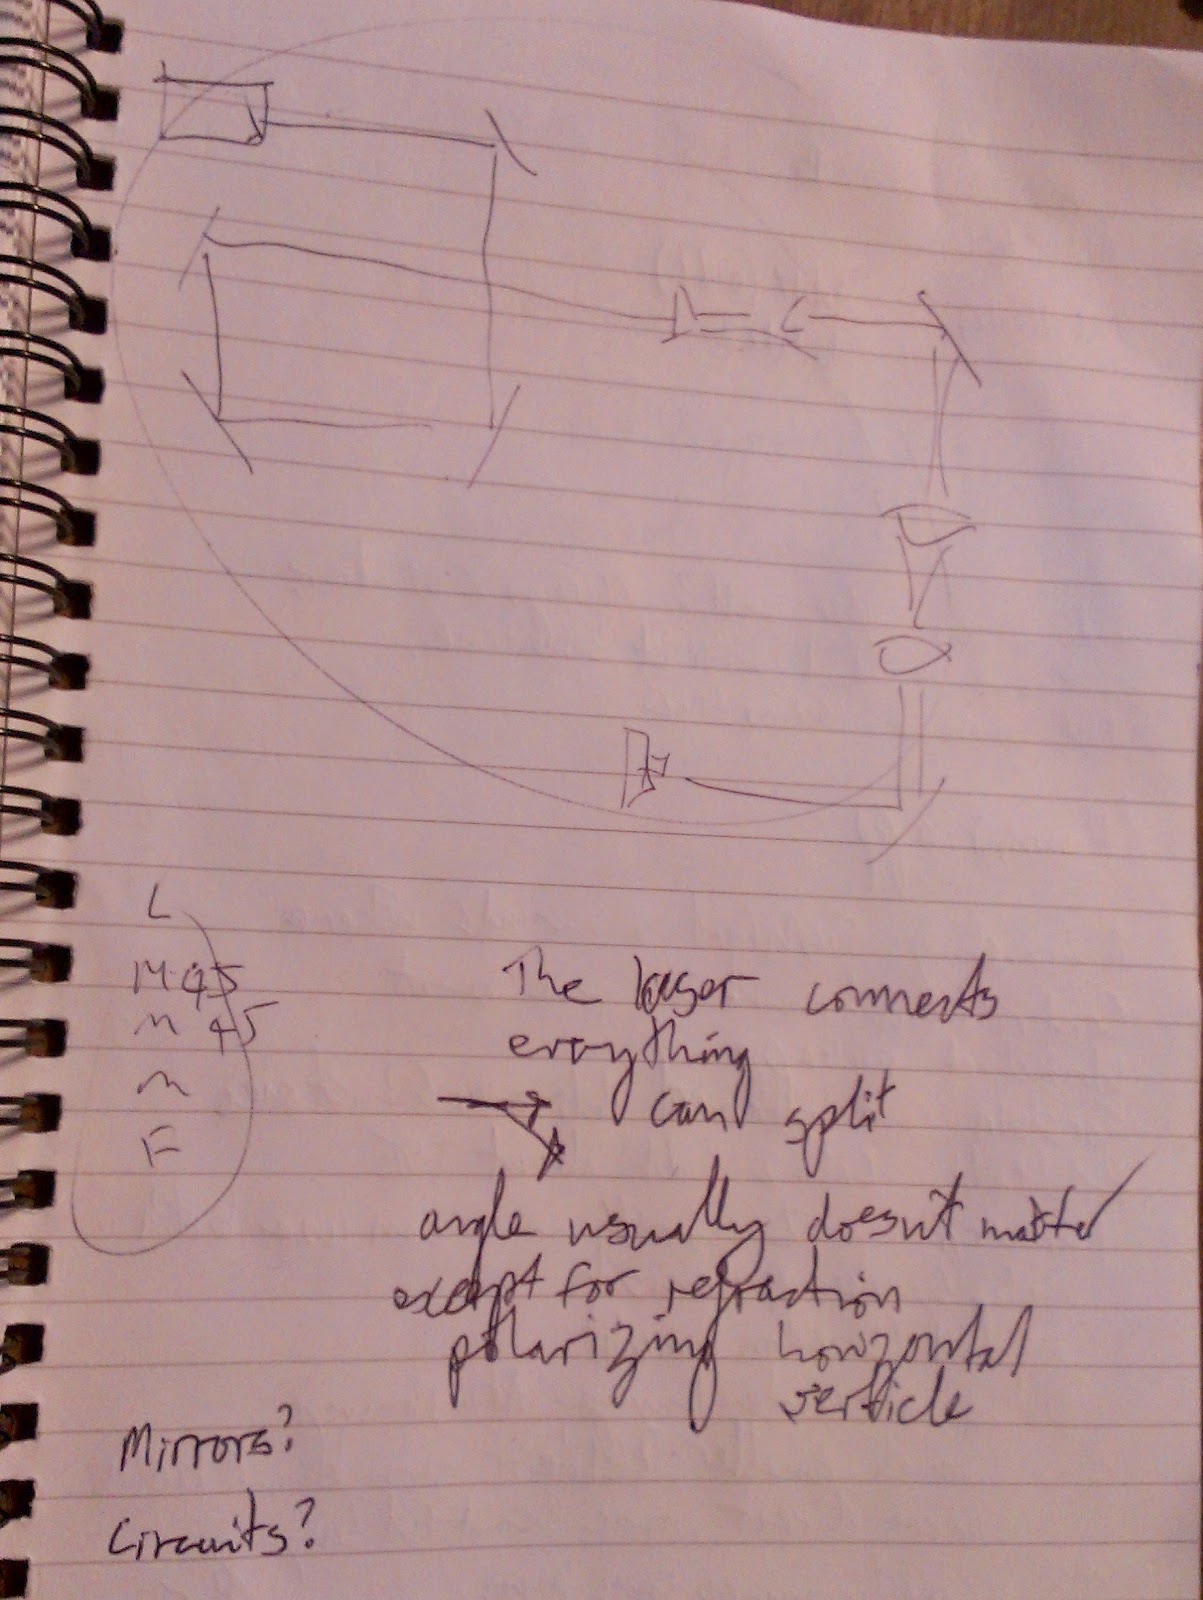 L
M 45
m 45
m
F
The laser connects
everything
can split
angle usually doesn't matter
except for refraction
polarizing horizontal
verticle
Mirrors?
Circuits?